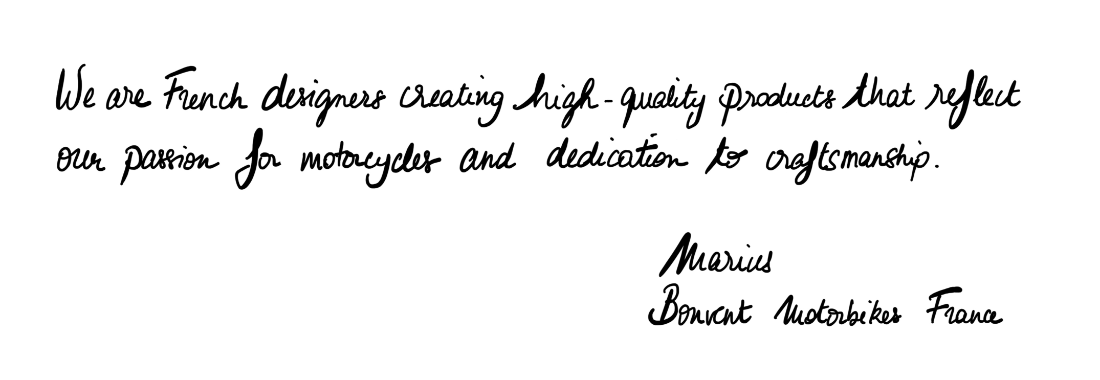 We are French designers creating high-quality products that reflect
our passion for motorcycles and dedication to craftsmanship.
Marius
Bonvent Motorbikes France